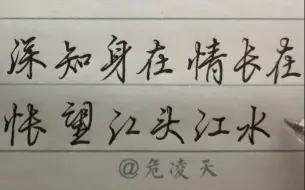 深知身在情长在
怅望江头江水
@危凌天